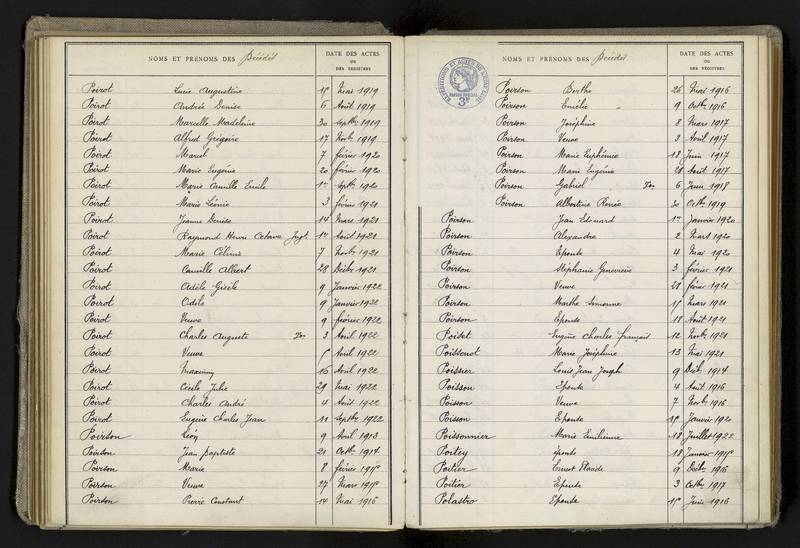 NOMS ET PRÉNOMS DES Décédés
DATE DES ACTES
OU
DES REGISTRES
Poirot Lucie Augustine 1919
Poirot Andrée Denise 6 Août 1919
Poirot Marcelle Madeleine 30 septbre 1919
Poirot Alfred Grégoire 17 Novb. 1919
Poirot Marcel 7 février 1920
Poirot Marie Eugénie 20 février 1920
Poirot Marie Camille Emile 1er Septb. 1920
Poirot Marie Léonie 3 février 1921
Poirot Jeanne Denise 14 Mars 1921
Poirot Raymond Henri Octave 1er Août 1921
Poirot Marie Céline 7 Novb. 1921
Poirot Camille Albert 28 Décb. 1921
Poirot Adèle Gisèle 9 Janvier 1922
Poirot Odile 9 Janvier 1922
Poirot Veuve 9 février 1922
Poirot Charles Auguste 3 Avril 1922
Poirot Veuve Avril 1922
Poirot 16 Avril 1922
Poirot Cécile Julie 29 Mai 1922
Poirot Charles André 4 Août 1922
Poirot Eugène Charles Jean 11 Septbre 1922
Poirson Léon 9 Avril 1913
Poirson Jean Baptiste 21 Octb. 1914
Poirson Marie 8 février
Poirson Veuve 27 Mars
Poirson Pierre Constant 14 Mai 1916
NOMS ET PRÉNOMS DES Décédés
DATE DES ACTES
OU
DES REGISTRES
3F
Poirson Berthe 26 Mai 1916
Poirson Emélie 9 Octb. 1916
Poirson Joséphine 8 Mars 1917
Poirson Veuve 3 Avril 1917
Poirson Marie Euphémie 18 Juin 1917
Poirson Marie Eugénie 28 Août 1917
Poirson Gabriel 6 Juin 1918
Poirson Albertine Renée 30 Octb. 1919
Poirson Jean Edouard 1er Janvier 1920
Poirson Alexandre 2 Mars 1920
Poirson Epouse 4 Mai 1920
Poirson Stéphanie Geneviève 3 février 1921
Poirson Veuve 28 février 1921
Poirson Marthe Simonne Mars 1921
Poirson Epouse 18 Août 1921
Poiset Eugène Charles français 12 Novb. 1921
Poissenot Marie Joséphine 13 Mai 1921
Poissier Louis Jean Joseph 9 Décb. 1914
Poisson Epouse 4 Août 1916
Poisson Veuve 7 Novb. 1916
Poisson Epouse Janvier 1920
Poissonnier Marie Emilienne 18 Juillet 1922
Poitey épouse 18 Janvier
Poitier Ernest Claude 9 Décb. 1916
Poitier Epouse 3 Octb. 1917
Polastro Epouse Juin 1916